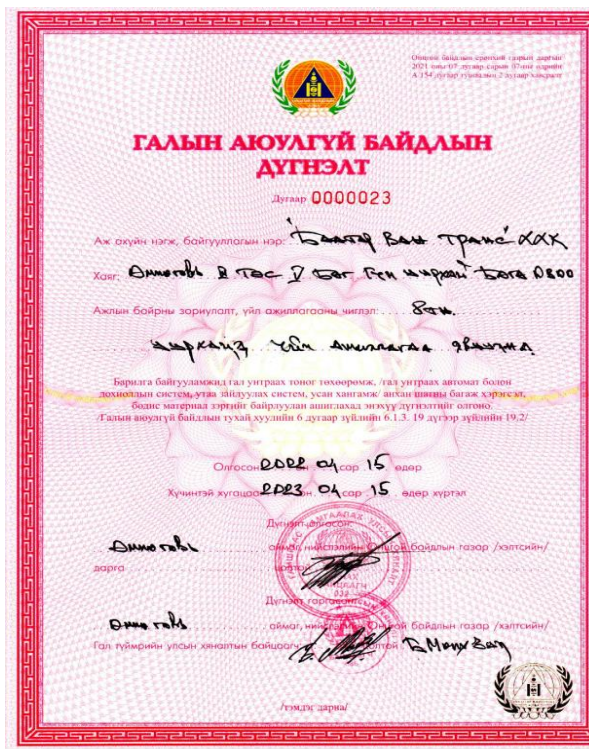 Онцгой байдлын ерөнхий газрын даргын
2021 оны 07 дугаар сарын 07-ны өдрийн
А/154 дугаар тушаалын 2 дугаар хавсралт
ГАЛЫН АЮУЛГҮЙ БАЙДЛЫН
ДҮГНЭЛТ
Дугаар 0000023
Аж ахуйн нэгж, байгууллагын нэр: "Баатар Ван транс" ХХК
Хаяг: Өмнөговь Баг
Ажлын байрны зориулалт, үйл ажиллагааны чиглэл:
үйл ажиллагаа явуулна.
Барилга байгууламжид гал унтраах тоног төхөөрөмж, /гал унтраах автомат болон
дохиоллын систем, утаа зайлуулах систем, усан хангамж/ анхан шатны багаж хэрэгсэл,
бодис материал зэргийг байрлуулан ашиглахад энэхүү дүгнэлтийг олгоно.
/Галын аюулгүй байдлын тухай хуулийн 6 дугаар зүйлийн 6.1.3. 19 дүгээр зүйлийн 19.2/
Олгосон 2022 он 04 сар 15 өдөр
Хүчинтэй хугацаа 2023 он 04 сар 15 өдөр хүртэл
Дүгнэлт олгосон:
Өмнөговь аймаг, нийслэлийн Онцгой байдлын газар /хэлтсийн/
дарга
Дүгнэлт гаргасан:
Өмнөговь аймаг, нийслэлийн Онцгой байдлын газар /хэлтсийн/
Гал түймрийн улсын хяналтын байцаагч
/тэмдэг дарна/